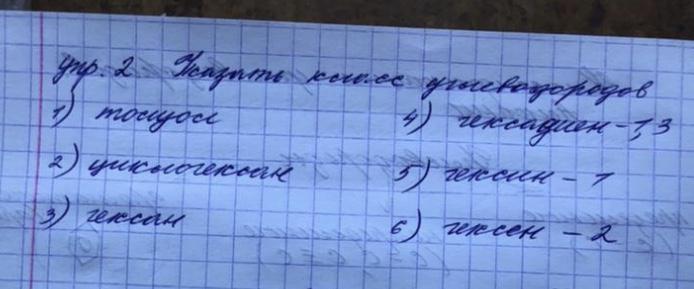 упр. 2 Указать класс углеводородов
1) толуол
4) гексадиен-1,3
2) циклогексан
5) гексин - 1
3) гексан
6) гексен - 2